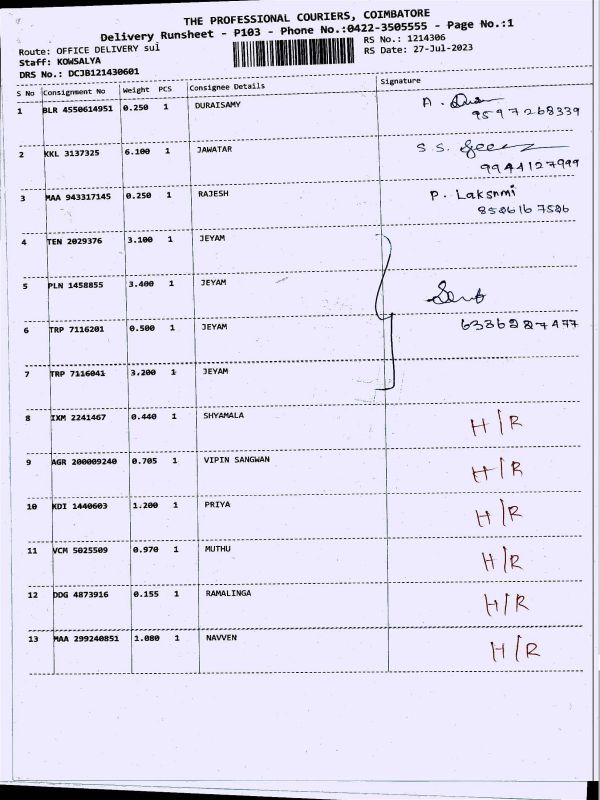 THE PROFESSIONAL COURIERS, COIMBATORE
Delivery Runsheet - P103 - Phone No.:0422-3505555 - Page No.:1
Route: OFFICE DELIVERY sul
RS No.: 1214306
Staff: KOWSALYA
RS Date: 27-Jul-2023
DRS No.: DCJB121430601
S No Consignment No Weight PCS Consignee Details Signature
1 BLR 4550614951 0.250 1 DURAISAMY A.
9597268339
2 KKL 3137325 6.100 1 JAWATAR S. S.
9944127999
3 MAA 943317145 0.250 1 RAJESH P. Laksnmi
8506167506
4 TEN 2029376 3.100 1 JEYAM
5 PLN 1458855 3.400 1 JEYAM
6 TRP 7116201 0.500 1 JEYAM
7 TRP 7116041 3.200 1 JEYAM
8 IXM 2241467 0.440 1 SHYAMALA H/R
9 AGR 200009240 0.705 1 VIPIN SANGWAN H/R
10 KDI 1440603 1.200 1 PRIYA H/R
11 VCM 5025509 0.970 1 MUTHU H/R
12 DDG 4873916 0.155 1 RAMALINGA H/R
13 MAA 299240851 1.080 1 NAVVEN H/R